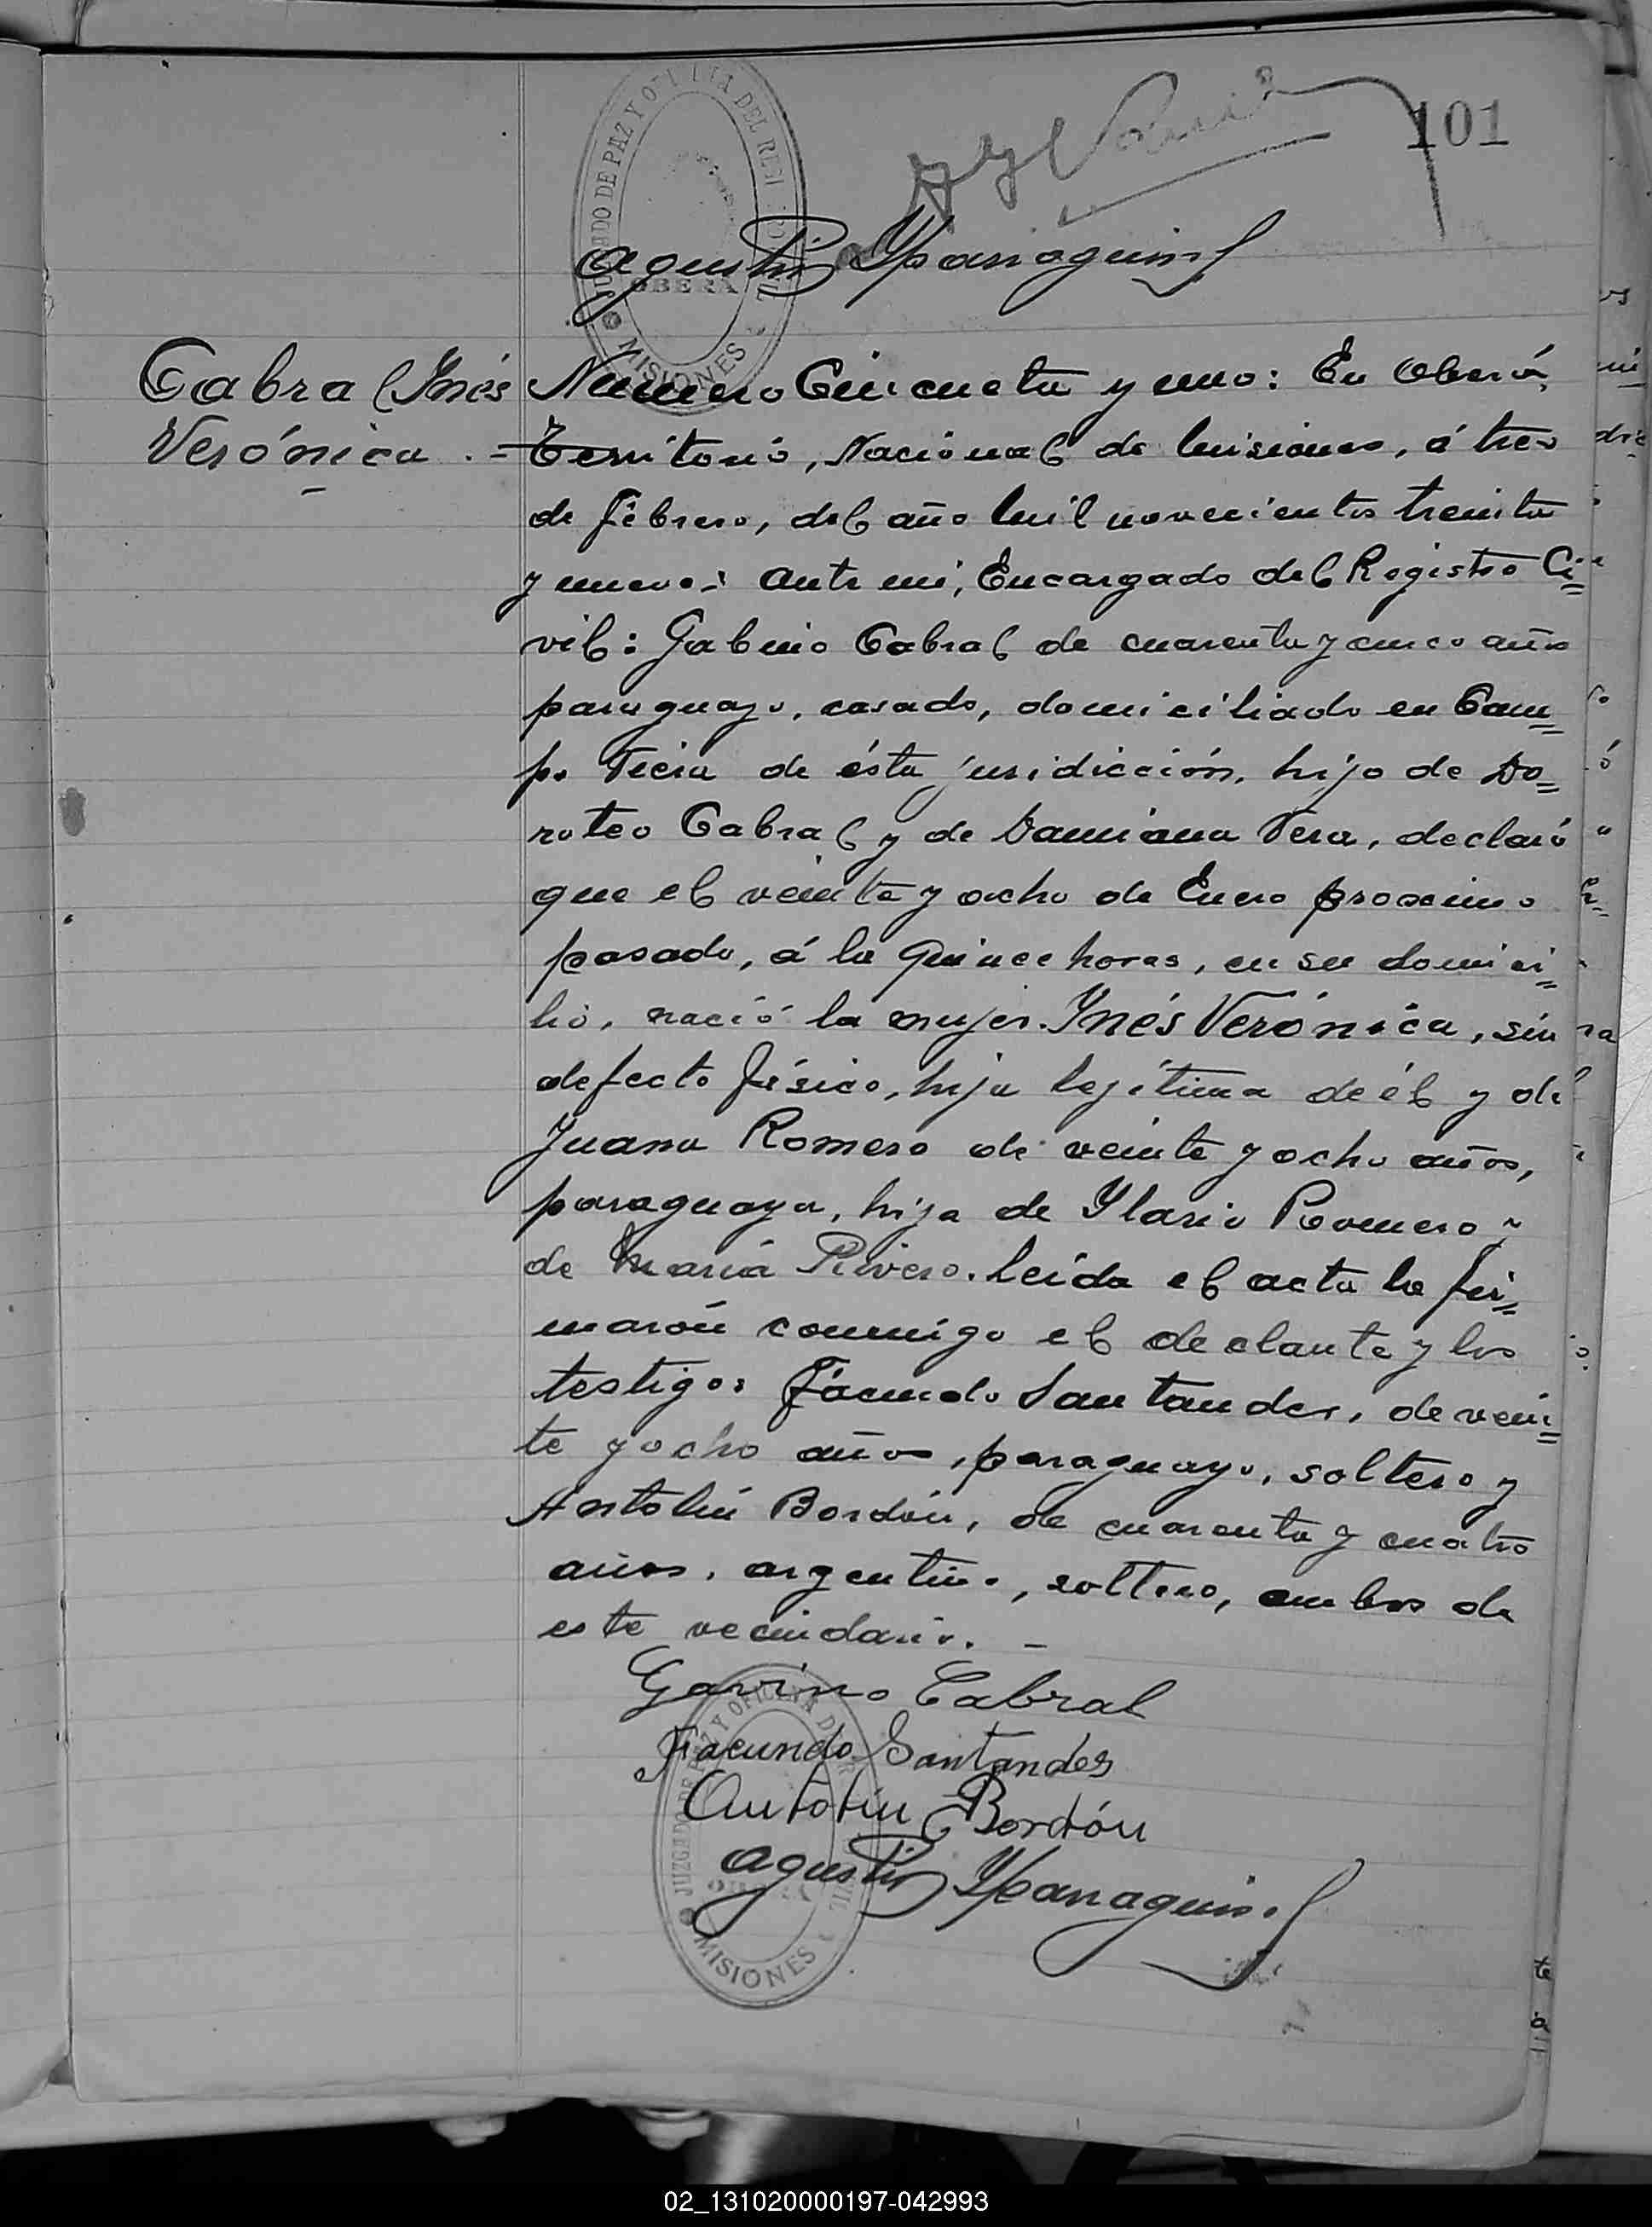 101
JUZGADO DE PAZ Y OFICINA DEL REGISTRO CIVIL
OBERA
MISIONES
Agustin Ypanaguire
Cabral Inés
Verónica . =
Numero Cincueta y uno: En Oberá,
Territorio, Nacional de Misiones, á tres
de Febrero, del año mil novecientos treinta
y nueve: ante mi, Encargado del Registro Ci=
vil: Gabino Cabral de cuarenta y cinco años
paraguayo, casado, domiciliado en Cam=
po Viera de ésta juridicción, hijo de Do=
roteo Cabral y de Damiana Vera, declaró
que el veinte y ocho de Enero proximo
pasado, á la quince horas, en su domici=
lio, nació la mujer Inés Verónica, sin
defecto físico, hija legítima de él y de
Juana Romero de veinte y ocho años,
paraguaya, hija de Ylario Romero y
de María Rivero. Leida el acta la fir=
marón conmigo el declante y los
testigos Facundo Santander, de vein=
te y ocho años, paraguayo, soltero y
Antolín Bordón, de cuarenta y cuatro
años, argentino, soltero, ambos de
este vecindario. -
Gavino Cabral
Facundo Santander
Antolín Bordón
Agustin Ypanaguire
JUZGADO DE PAZ Y OFICINA DEL
MISIONES
02_131020000197-042993